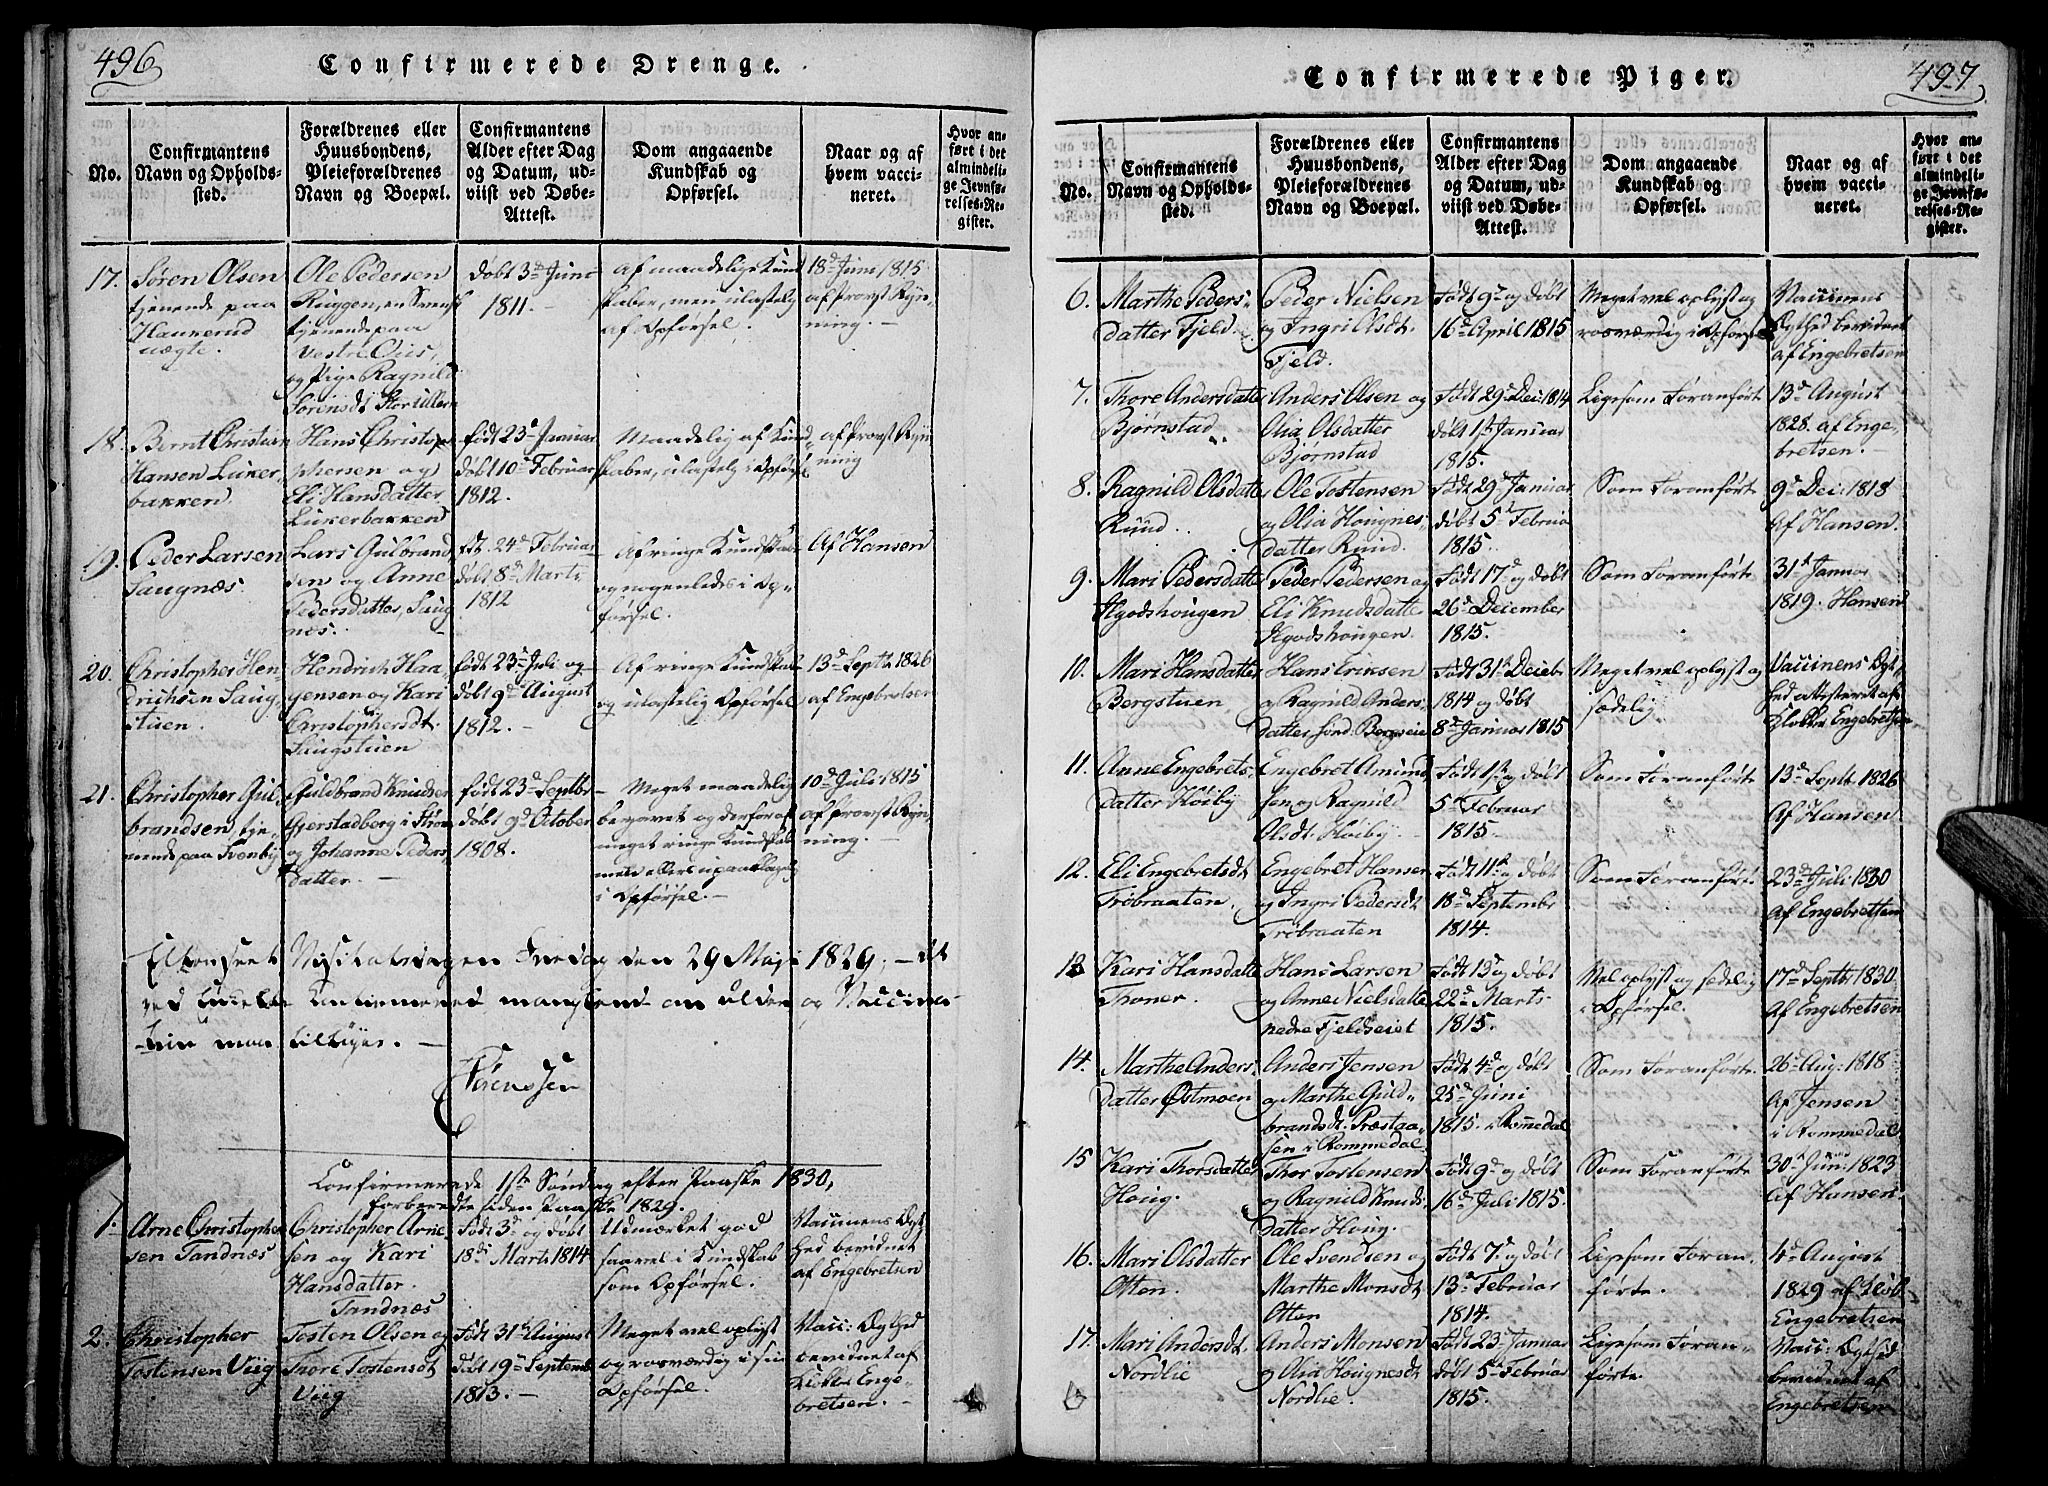 496
Confirmerede Drenge.
No.
Confirmantens
Navn og Opholds-
sted.
Forældrenes eller
Huusbondens,
Pleieforældrenes
Navn og Boepæl.
Confirmantens
Alder efter Dag
og Datum, ud-
viist ved Døbe-
Attest.
Dom angaaende
Kundskab og
Opførsel.
Naar og af
hvem vacci-
neret.
Hvor an-
ført i det
almindeli-
ge Jevnfø-
relses-Re-
gister.
17.
Søren Olsen
tjenende paa
Haukerud
uægte.
Ole Pedersen
Ruggen, en Svensk
tjenende paa
Vestre
og Pige Ragnild
Sørensdt.
døbt 3d Juni
1811. -
Af maadelige Kund
skaber, men ulastelig
af Opførsel.
18d Juni 1815
af Provst Ryn-
ning. -
18.
Bernt Christian
Hansen Luker
bakken
Hans Christo
phersen og
Eli Hansdatter
Lukerbakken
født 23d Januar
døbt 10d Februar
1812.
Maadelig af Kund
skaber, ulastelig i Opførsel
af Provst Ryn
ning
19.
Peder Larsen
Saugnæs.
Lars Gulbrand
sen og Anne
Pedersdatter, Saug
næs.
fdt. 24d Februar
døbt 8d Marts
1812
Af ringe Kundskab
og nogenledes i Op-
førsel.
Af Hansen
20.
Christopher Hen
drichsen Saug-
stuen.
Hendrich Haa-
gensen og Kari
Christophersdt.
Saugstuen
født 23d Juli og
døbt 9d August
1812. -
Af ringe Kundskab
og ulastelig Opførsel
13d Septb 1826
af Engebretsen
21.
Christopher Gul
brandsen, tje-
nende paa Svenby
Guldbrand Knudsen
Gjerstadberg i Støn
og Johanne Peders
datter. -
født 23d Septbr
døbt 9d October
1808.
Meget maadelig
begavet og derfor af
meget ringe Kundskab
men ellers upaaklagelig
i Opførsel.
10d Juli 1815
af Provst Ryn
ning. -
Visitatsdagen Fredag den 29 Maji 1829; -
ved Confirmerede
man tilføyer. -
Sørenssen
Confirmerede 1ste Søndag efter Paaske 1830,
forberedte siden Paaske 1829.
1.
Arne Christopher
sen Tandnæs
Christopher Arne
sen og Kari
Hansdatter
Tandnæs
Født 3d og døbt
18d Marts 1814
Udmærket god
saavel i Kundskab
som Opførsel.
Vaccinens Ægt
hed bevidnet
af Engebretsen
2.
Christopher
Tostensen Viig
Tosten Olsen og
Thore Tostensdt
Viig
Født 31d August
døbt 19d Septemb
1813. -
Meget vel oplyst
og rosværdig i sin
Opførsel.
Vacc: Ægthed
bevidnet af
Klokker Enge-
bretsen. -
497
Confirmerede Piger.
No.
Confirmantens
Navn og Opholds-
sted.
Forældrenes eller
Huusbondens,
Pleieforældrenes
Navn og Boepæl.
Confirmantens
Alder efter Dag
og Datum, ud-
viist ved Døbe-
Attest.
Dom angaaende
Kundskab og
Opførsel.
Naar og af
hvem vacci-
neret.
Hvor an-
ført i det
almindeli-
ge Jevnfø-
relses-Re-
gister.
6.
Marthe Peders-
datter Fjeld.
Peder Nielsen
og Ingri Olsdt.
Fjeld.
Født 9d og døbt
16d April 1815
Meget vel oplyst og
rosværdig i Opførsel
Vaccinens
Ægthed bevidnet
af Engebretsen
7.
Thore Andersdatter
Bjørnstad
Anders Olsen og
Olia Olsdatter
Bjørnstad
Født 29d Dec: 1814
døbt 1st Januar
1815.
Ligesom Foranførte
13d August
1828. af Enge-
bretsen. -
8.
Ragnild Olsdatter
Ruud.
Ole Tostensen
og Olia Hougnes-
datter Ruud.
Født 29d Januar
døbt 5d Februar
1815.
Som Foranførte
9d Dec: 1818
Af Hansen.
9.
Mari Pedersdatter
Ilgodshougen
Peder Pedersen og
Eli Knudsdatter
Ilgodshougen.
Født 17d og døbt
26d December
1815.
Som Foranførte
31d Januar
1819. Hansen
10.
Mari Hansdatter
Bergstuen
Hans Ericsen
og Ragnild Anders-
datter søndr Bergseie
Født 31d Decbr
1814 og døbt
8d Januar 1815
Meget vel oplyst og
sædelig.
Vaccinens Ægt-
hed attesteret af
Klokker Engebretsen
11.
Anne Engebrets-
datter Høiby
Engebret Amund
sen og Ragnild
Olsdt. Høiby. -
Født 1st og døbt
5d Februar
1815.
Som Foranførte
13d Septb 1826
Af Hansen
12.
Eli Engebretsdt
Trøbraaten.
Engebret Hansen
og Ingri Pedersdt
Trøbraaten
Født 11d og døbt
18d Septembr
1814.
Som Foranførte.
23d Juli 1830
Af Engebretsen
13
Kari Hansdatter
Troner.
Hans Larsen
og Anne Nielsdatter
nedre Fjeldseiet
Født 13d og døbt
22d Marts
1815.
Vel oplyst og sædelig
i Opførsel.
17d Septb 1830
Af Engebretsen
14.
Marthe Anders
datter Østmoen
Anders Jensen
og Marthe Guld-
brandsdt. Præstaa-
sen i Rommedal
Født 4d og døbt
25d Juni
1815. i Romedal
Som Foranførte.
26d Aug: 1818
Af Jensen
i Rommedal
15
Kari Thorsdatter
Houg.
Thor Tostensen
og Ragnild Knuds-
datter Houg.
Født 9d og døbt
16d Juli 1815.
Som Foranførte
30d Juni 1823
Af Hansen
16.
Mari Olsdatter
Otten.
Ole Svendsen og
Marthe Monsdt
Otten
Født 7d og døbt
13d Februar
1814.
Ligesom Foran-
førte.
4d August
1829 af Klok-
Engebretsen
17.
Mari Andersdt.
Nordlie
Anders Monsen
og Olia Hougnesdt
Nordlie.
Født 23d Januar
døbt 5d Februar
1815.
Ligesom Foran-
førte.
Vacc: Ægthed
bevidnet af
Engebretsen